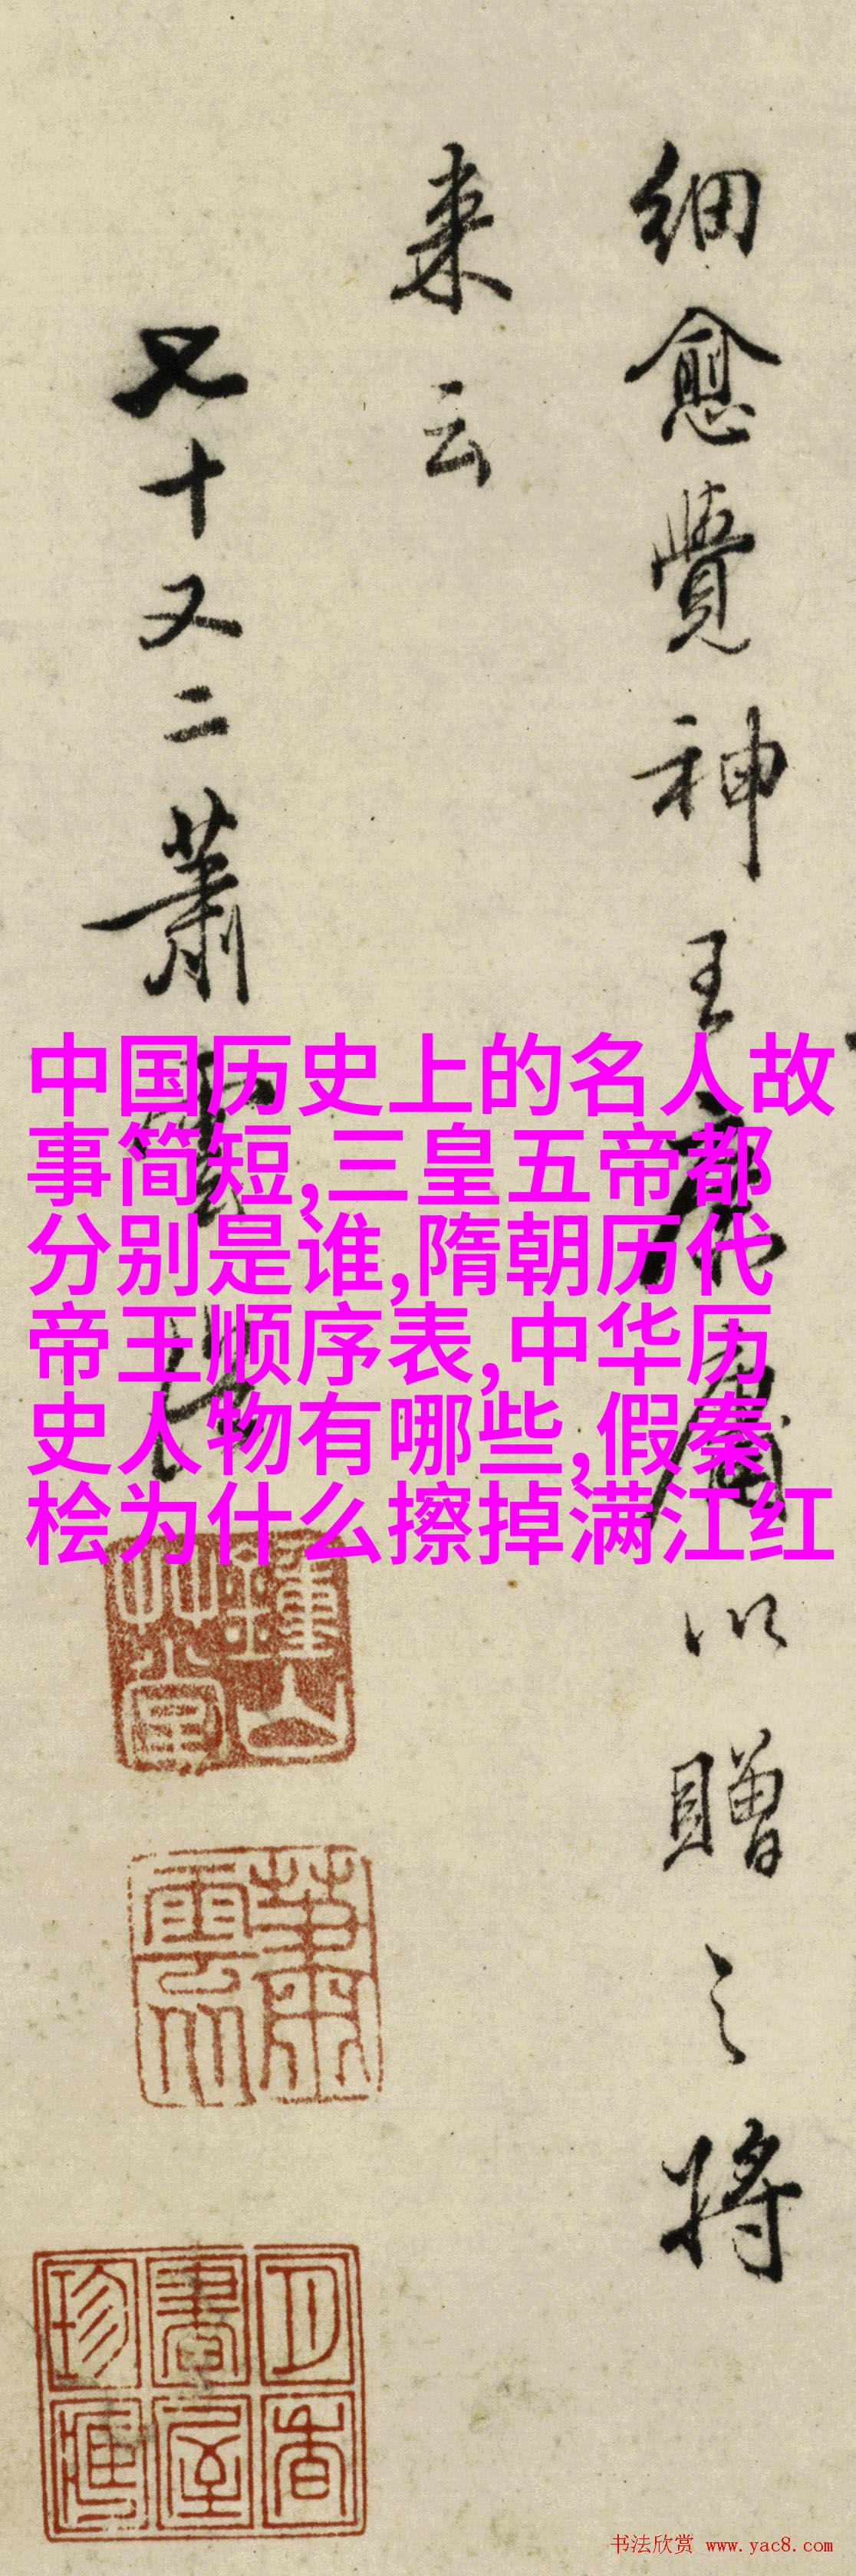 細愈覺神王以贈之將
来云
十又二蕭雲
中国历史上的名人故
事简短,三皇五帝都
分别是谁,隋朝历代
帝王顺序表,中华历
史人物有哪些,假秦
桧为什么擦掉满江红
鍾山
艸堂
蕭
雲從
書屋
书法欣赏 www.yac8.com